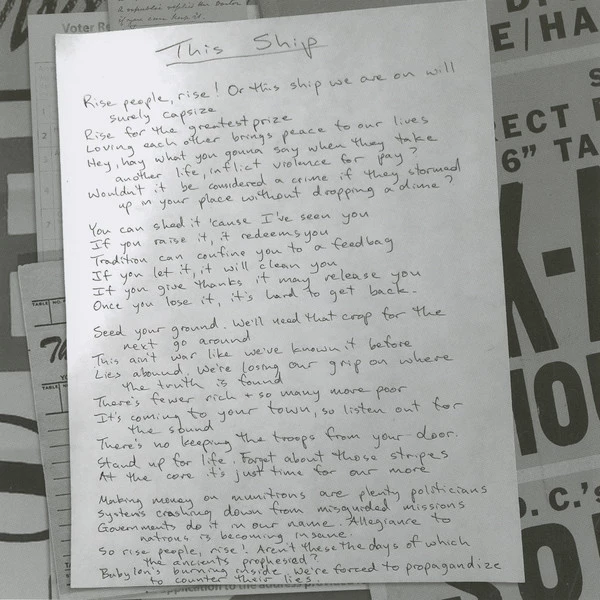 Voter Re
This Ship
Rise people, rise! Or this ship we are on will
surely capsize
Rise for the greatest prize
Loving each other brings peace to our lives
Hey, hay what you gonna say when they take
another life, inflict violence for pay?
Wouldn't it be considered a crime if they stormed
up in your place without dropping a dime?
You can shed it 'cause I've seen you
If you raise it, it redeems you
Tradition can confine you to a feedbag
If you let it, it will clean you
If you give thanks it may release you
Once you lose it, it's hard to get back.
Seed your ground. We'll need that crop for the
next go around
This ain't war like we've known it before
Lies abound. We're losing our grip on where
the truth is found
There's fewer rich + so many more poor
It's coming to your town, so listen out for
the sound
There's no keeping the troops from your door.
Stand up for life. Forget about those stripes
At the core it's just time for our more
Making money on munitions are plenty politicians
Systems crashing down from misguided missions
Governments do it in our name. Allegiance to
nations is becoming insane.
So rise people, rise! Aren't these the days of which
the ancients prophesied?
Babylon's burning inside. We're forced to propagandize
to counter their lies.
E/HA
RECT
6" TA
TABLE
TABLE
. C.'s